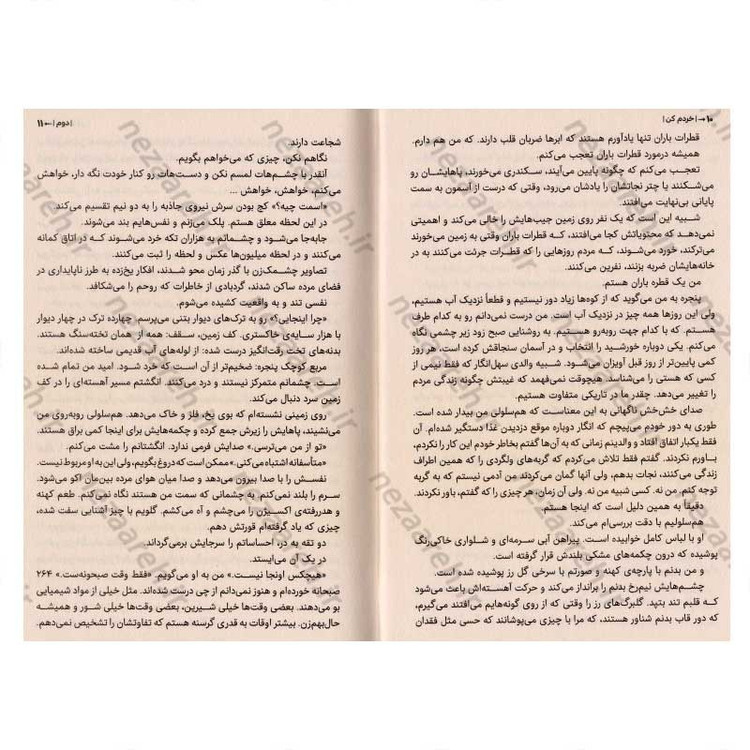 ۱۰ → | خردم کن |
قطرات باران تنها یادآورم هستند که ابرها ضربان قلب دارند. که من هم دارم.
همیشه درمورد قطرات باران تعجب می‌کنم.
تعجب می‌کنم که چگونه پایین می‌آیند، سکندری می‌خورند، پاهایشان رو
می‌شکنند یا چتر نجاتشان را یادشان می‌رود، وقتی که درست از آسمون به سمت
پایانی بی‌نهایت می‌افتند.
شبیه این است که یک نفر روی زمین جیب‌هایش را خالی می‌کند و اهمیتی
نمی‌دهد که محتویاتش کجا می‌افتند، که قطرات باران وقتی به زمین می‌خورند
می‌ترکند، خورد می‌شوند، کـه مردم روزهایی را که قطـرات جرئت می‌کنند به در
خانه‌هایشان ضربه بزنند، نفرین می‌کنند.
من یک قطره باران هستم.
پنجره به من می‌گوید که از کوه‌ها زیاد دور نیستیم و قطعاً نزدیک آب هستیم،
ولی این روزها همه چیز در نزدیک آب است. من درست نمی‌دانم رو به کدام طرف
هستم. که با کدام جهت روبه‌رو هستیم. به روشنایی صبح زود زیر چشمی نگاه
می‌کنم. یکی دوباره خورشید را انتخاب و در آسمان سنجاقش کرده است، هر روز
کمی پایین‌تر از روز قبل آویزان می‌شود. شبیه والدی سهل‌انگار که فقط نیمی از
کسی که هستی را می‌شناسد. هیچوقت نمی‌فهمد که غیبتش چگونه زندگی مردم
را تغییر می‌دهد. چقدر ما در تاریکی متفاوت هستیم.
صدای خش‌خش ناگهانی به این معناست که هم‌سلولی من بیدار شده است.
طوری به دور خودم می‌پیچم که انگار دوباره موقع دزدیدن غذا دستگیر شده‌ام. آن
فقط یکبار اتفاق افتاد و والدینم زمانی که به آن‌ها گفتم بخاطر خودم این کار را نکردم،
باورم نکردند. گفتم فقط تلاش می‌کردم که گربه‌های ولگردی را که همین اطراف
زندگی می‌کنند، نجات بدهم، ولی آنها گمان می‌کردند من آدمی نیستم که به گربه
توجه کنم. من نه. کسی شبیه من نه. ولی آن زمان، هر چیزی را که گفتم، باور نکردند.
دقیقاً به همین دلیل است که اینجا هستم.
هم‌سلولیم با دقت بررسی‌ام می‌کند.
او با لباس کامل خوابیده است. پیراهن آبی سرمه‌ای و شلواری خاکی‌رنگ
پوشیده که درون چکمه‌های مشکی بلندش قرار گرفته است.
و من بدنم با پارچه‌ی کهنه و صورتم با سرخی گل رز پوشیده شده است.
چشم‌هایش نیم‌رخ بدنم را برانداز می‌کند و حرکت آهسته‌اش باعث می‌شود
که قلبم تند بتپد. گلبرگ‌های رز را وقتی که از روی گونه‌هایم می‌افتند می‌گیرم،
که دور قاب بدنم شناور هستند، که مرا با چیزی می‌پوشانند که حسی مثل فقدان
| دوم | ← ۱۱
شجاعت دارند.
نگاهم نکن، چیزی که می‌خواهم بگویم.
آنقدر با چشم‌هات لمسم نکن و دست‌هات رو کنار خودت نگه دار، خواهش
می‌کنم، خواهش، خواهش ...
«اسمت چیه؟» کج بودن سرش نیروی جاذبه را به دو نیم تقسیم می‌کند
در این لحظه معلق هستم. پلک می‌زنم و نفس‌هایم بند می‌شوند.
جابه‌جا می‌شود و چشمانم به هزاران تکه خرد می‌شوند کـه در اتاق کمانه
می‌کنند و در لحظه میلیون‌ها عکس و لحظه را ثبت می‌کنند.
تصاویر چشمک‌زن با گذر زمان محو شدند، افکار یخ‌زده به طرز ناپایداری در
فضای مرده ساکن شدند، گردبادی از خاطرات که روحم را می‌شکافد.
نفسی تند و به واقعیت کشیده می‌شوم.
«چرا اینجایی؟» رو به ترک‌های دیوار بتنی می‌پرسم. چهارده ترک در چهار دیوار
با هزار سایه‌ی خاکستری. کف زمین، سقف: همه از همان تخته‌سنگ هستند.
بدنه‌های تخت رقت‌انگیز درست شده: از لوله‌های آب قدیمی ساخته شده‌اند.
مربع کوچک پنجره: ضخیم‌تر از آن است که خرد شود. امید من تمام شده
است. چشمانم متمرکز نیستند و درد می‌کنند. انگشتم مسیر آهسته‌ای را در کف
زمین سرد دنبال می‌کند.
روی زمینی نشسته‌ام که بوی یخ، فلز و خاک می‌دهد. هم‌سلولی روبه‌روی من
می‌نشیند، پاهایش را زیرش جمع کرده و چکمه‌هایش برای اینجا کمی براق هستند.
«تو از من می‌ترسی.» صدایش فرمی ندارد. انگشتانم را مشت می‌کنم.
«متأسفانه اشتباه می‌کنی.» ممکن است که دروغ بگویم، ولی این به او مربوط نیست.
نفسش را با صدا بیرون می‌دهد و صدا میان هوای مرده بین‌مان اکو می‌شود.
سرم را بلند نمی‌کنم. به چشمانی که سمت من هستند نگاه نمی‌کنم. طعم کهنه
و هدررفته‌ی اکسیژن را می‌چشم و آه می‌کشم. گلویم با چیز آشنایی سفت شده،
چیزی که یاد گرفته‌ام قورتش دهم.
دو تقه به در، احساساتم را سرجایش برمی‌گرداند.
در یک آن می‌ایستد.
«هیچکس اونجا نیست.» من به او می‌گویم. «فقط وقت صبحونه‌ست.» ۲۶۴
صبحانه خورده‌ام و هنوز نمی‌دانم از چی درست شده‌اند. مثل خیلی از مواد شیمیایی
بو می‌دهند. بعضی وقت‌ها خیلی شیرین، بعضی وقت‌ها خیلی شور و همیشه
حال‌بهم‌زن. بیشتر اوقات به قدری گرسنه هستم که تفاوتشان را تشخیص نمی‌دهم.
nezaareh.ir